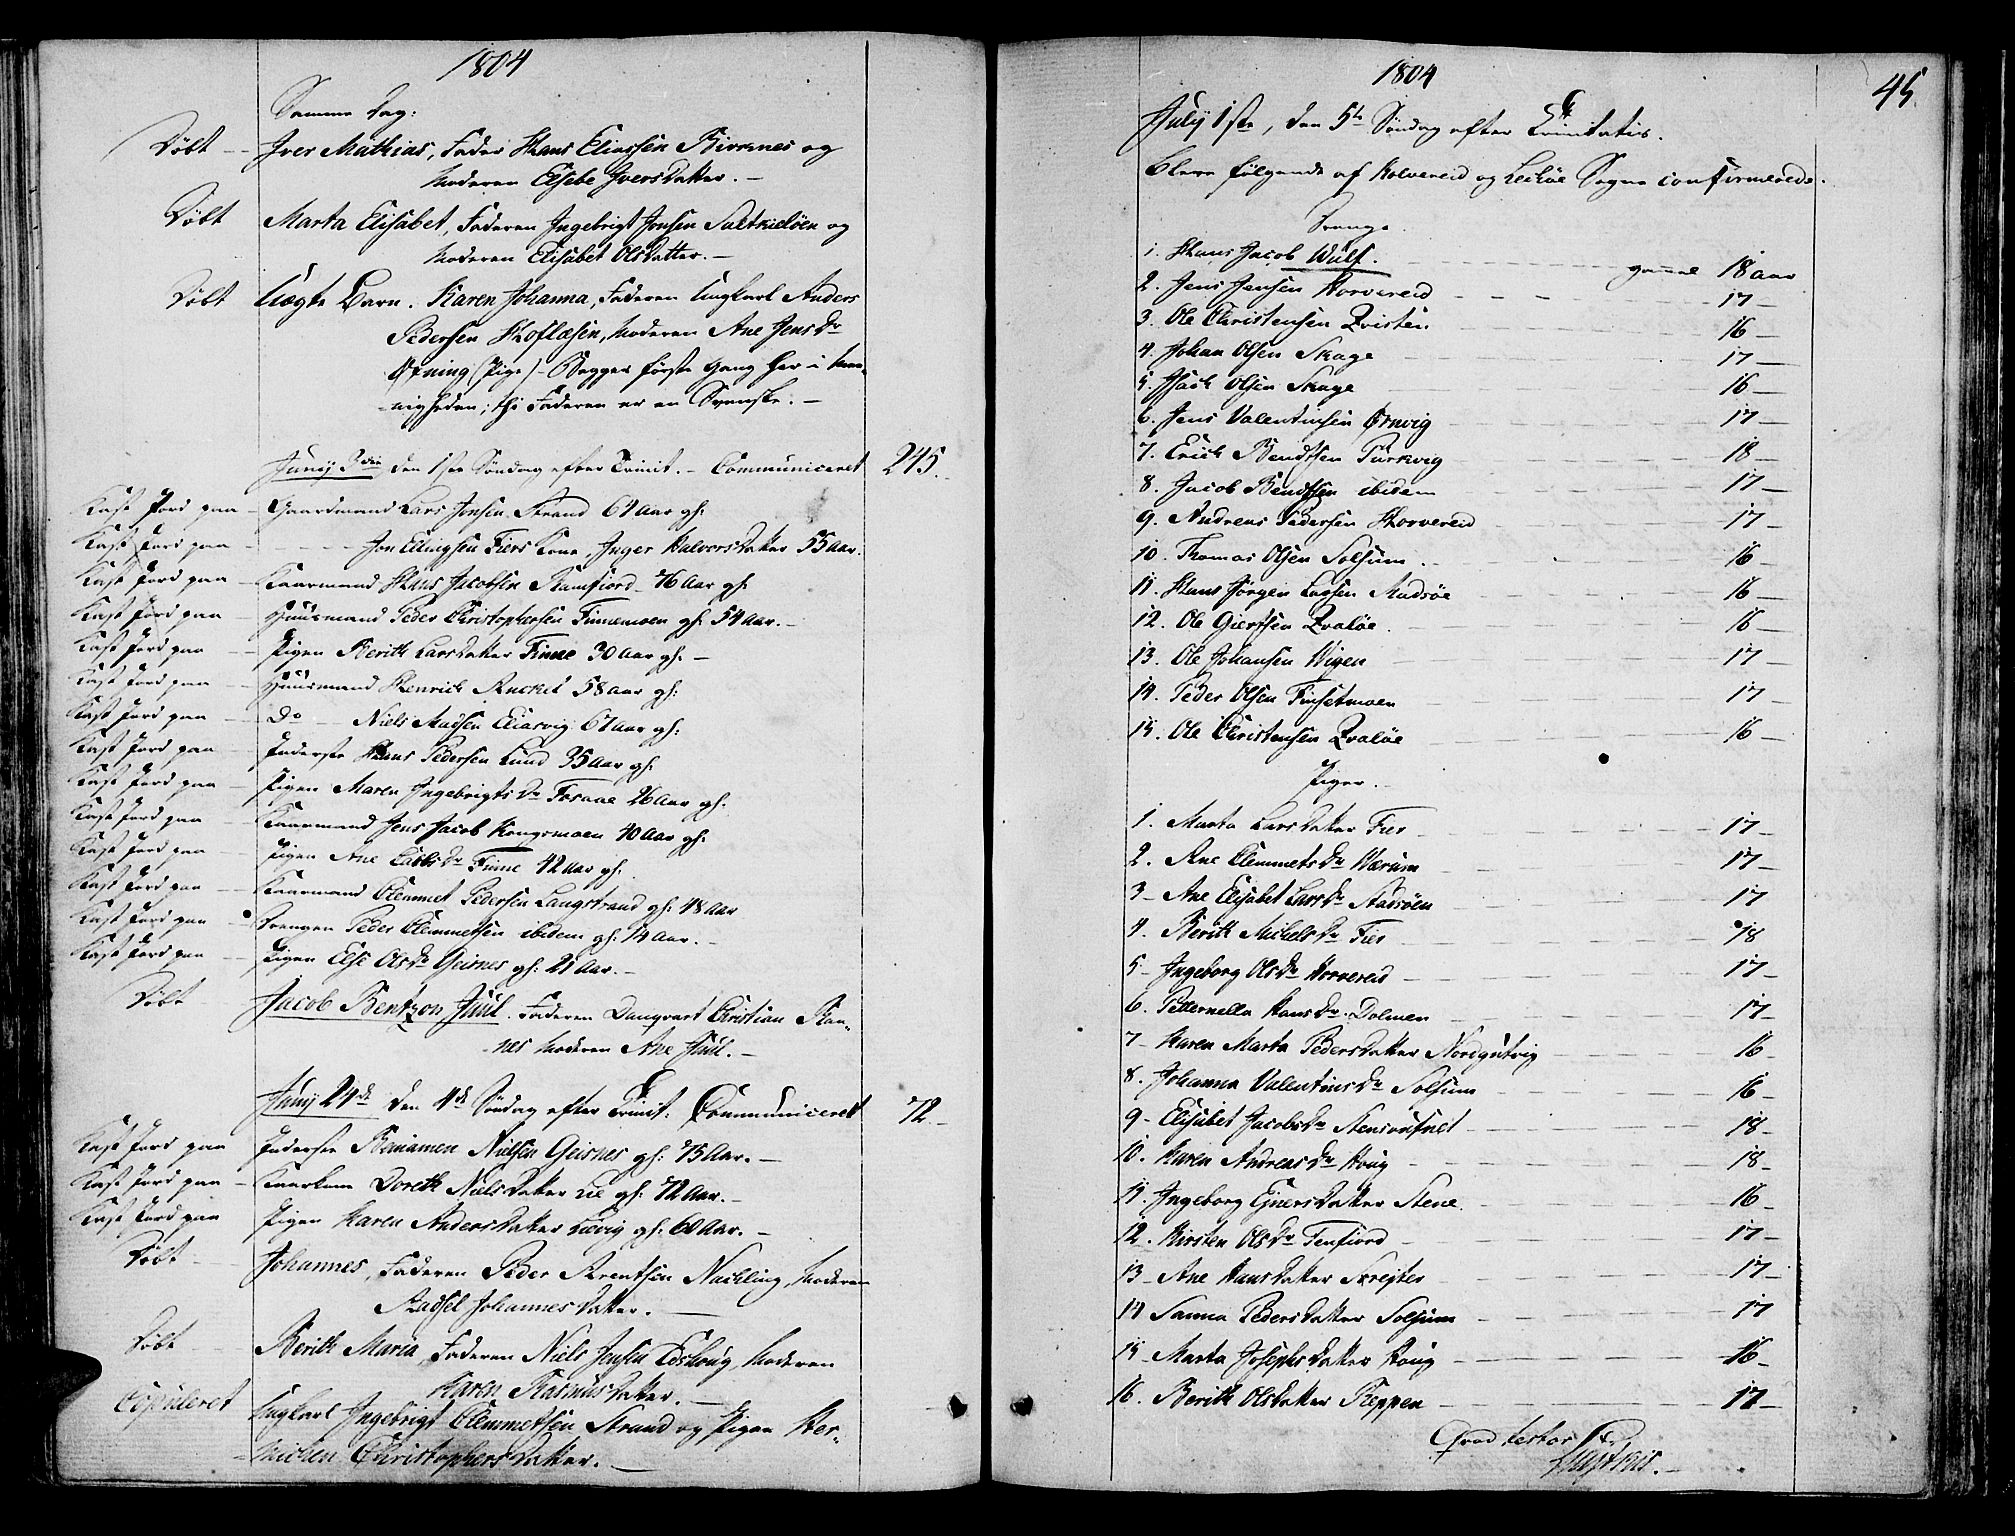 1804
Samme Dag:
Døbt -- Iver Mathias, Fader Hans Eliassen Birknes og
Moderen Elsebe Iversdatter. -
Døbt Marta Elisabet, Faderen Ingebrigt Jonsen Saltkieløen og
Moderen Elisabet Olsdatter. -
Døbt Uægte Barn. Karen Johanna, Faderen Ungkarl Anders
Pedersen Hoflæsen, Moderen Ane Jens Dr
(Pige) - Begges første Gang her i Me-
nigheden; thi Faderen er en Svenske. -
Junij 3die den 1ste Søndag efter Trinit. - Communiceret 245.
Kast Jord paa - Gaardmand Lars Jonsen Strand 67 Aar gl:
Kast Jord paa - Jon Ellingsen Fiers Kone, Inger Halvorsdatter 55 Aar.
Kast Jord paa - Kaarmand Hans Jacobsen Ramfiord 76 Aar gl:
Kast Jord paa Huusmand Peder Christophersen Finnemoen gl: 54 Aar. -
Kast Jord paa - Pigen Berith Larsdatter Finne 30 Aar gl: -
Kast Jord paa - Huusmand Henrich 58 Aar gl:
Kast Jord paa - Do - Niels Madsen 67 Aar gl:
Kast Jord paa - Inderste Hans Pedersen Lund 35 Aar gl:
Kast Jord paa - Pigen Maren Ingebrigts Dr Foraae 26 Aar gl:
Kast Jord paa Kaarmand Jens Jacob Kongsmoen 40 Aar gl:
Kast Jord paa - Pigen Ane Dr Finne 42 Aar gl:
Kast Jord paa - Kaarmand Clemmet Pedersen Langstrand gl: 48 Aar
Kast Jord paa Drengen Peder Clemmetsen ibidem gl: 14 Aar. -
Kast Jord paa - Pigen Else Ols Dr Geisnes gl: 21 Aar. -
Døbt Jacob Bentzon Juul. Faderen Danqvart Christian Ran-
nes Moderen Ane Juul. -
Junij 24de den 4de Søndag efter Trinit: Communiceret 72.-
Kast Jord paa Inderste Beniamen Nielsen Geisnes gl: 75 Aar. -
Kast Jord paa - Kaarkone Doreth Nielsdatter Lie gl: 72 Aar. -
Kast Jord paa Pigen Karen Andersdatter gl: 60 Aar. -
Døbt - Johannes, Faderen Peder Arentsen Nachling, Moderen
Johannesdatter. -
Døbt - Berith Maria, Faderen Niels Jensen Edshoug, Moderen
Karen Rasmusdatter. -
Copuleret Ungkarl Ingebrigt Clemmetsen Strand og Pigen Her-
michen Christophersdatter. -
1804
45.
July 1ste, den 5te Søndag efter Trinitatis.
Bleve følgende af Kolvereid og Lechøe Sogne confirmerede.
Drenge.
1. Hans Jacob Wulf. gammel 18 aar
2. Jens Jensen Horvereid 17 -
3. Ole Christensen Qvisten 16 -
4. Johan Olsen Skage 17 -
5. Isach Olsen Skage 16 -
6. Jens Valentinsen Ørnvig 17 -
7. Erich Bendtsen Purkvig 18 -
8. Jacob Bendtsen ibidem 17 -
9. Andreas Pedersen Horvereid 17 -
10. Thomas Olsen Solsum 16 -
11. Hans Jørgen Lassen Madsøe 16 -
12. Ole Giertsen Qvaløe 16 -
13. Ole Johansen Wigen 17 -
14. Peder Olsen Finsetmoen 17 -
15. Ole Christensen Qvaløe 16 -
Piger. -
1. Marta Larsdatter Fier 17 -
2. Ane Clemmets Dr Wærum 17 -
3 - Ane Elisabet Lars Dr 17
4. Berith Michels Dr Fier 18
5 - Ingeborg Ols Dr Horvereid 17 -
6. Petternella Hans Dr. Dolmen 17 -
7 - Karen Marta Pedersdatter Nordgutvig 16 -
8. Johanna Valentins Dr Solsum 16 -
9 - Elisabet Jacobs Dr 18 -
10. Karen Andreas Dr Houg 18 -
11. Ingeborg Ejnersdatter Stene. 16 -
12. Kirsten Ols Dr Tenfiord 17 -
13 - Ane Hansdatter 17 -
14 Sanna Pedersdatter Solsum 17
15 - Marta Josephsdatter Houg 16 -
16. Berith Olsdatter Reppen 17 -
Qvod testor